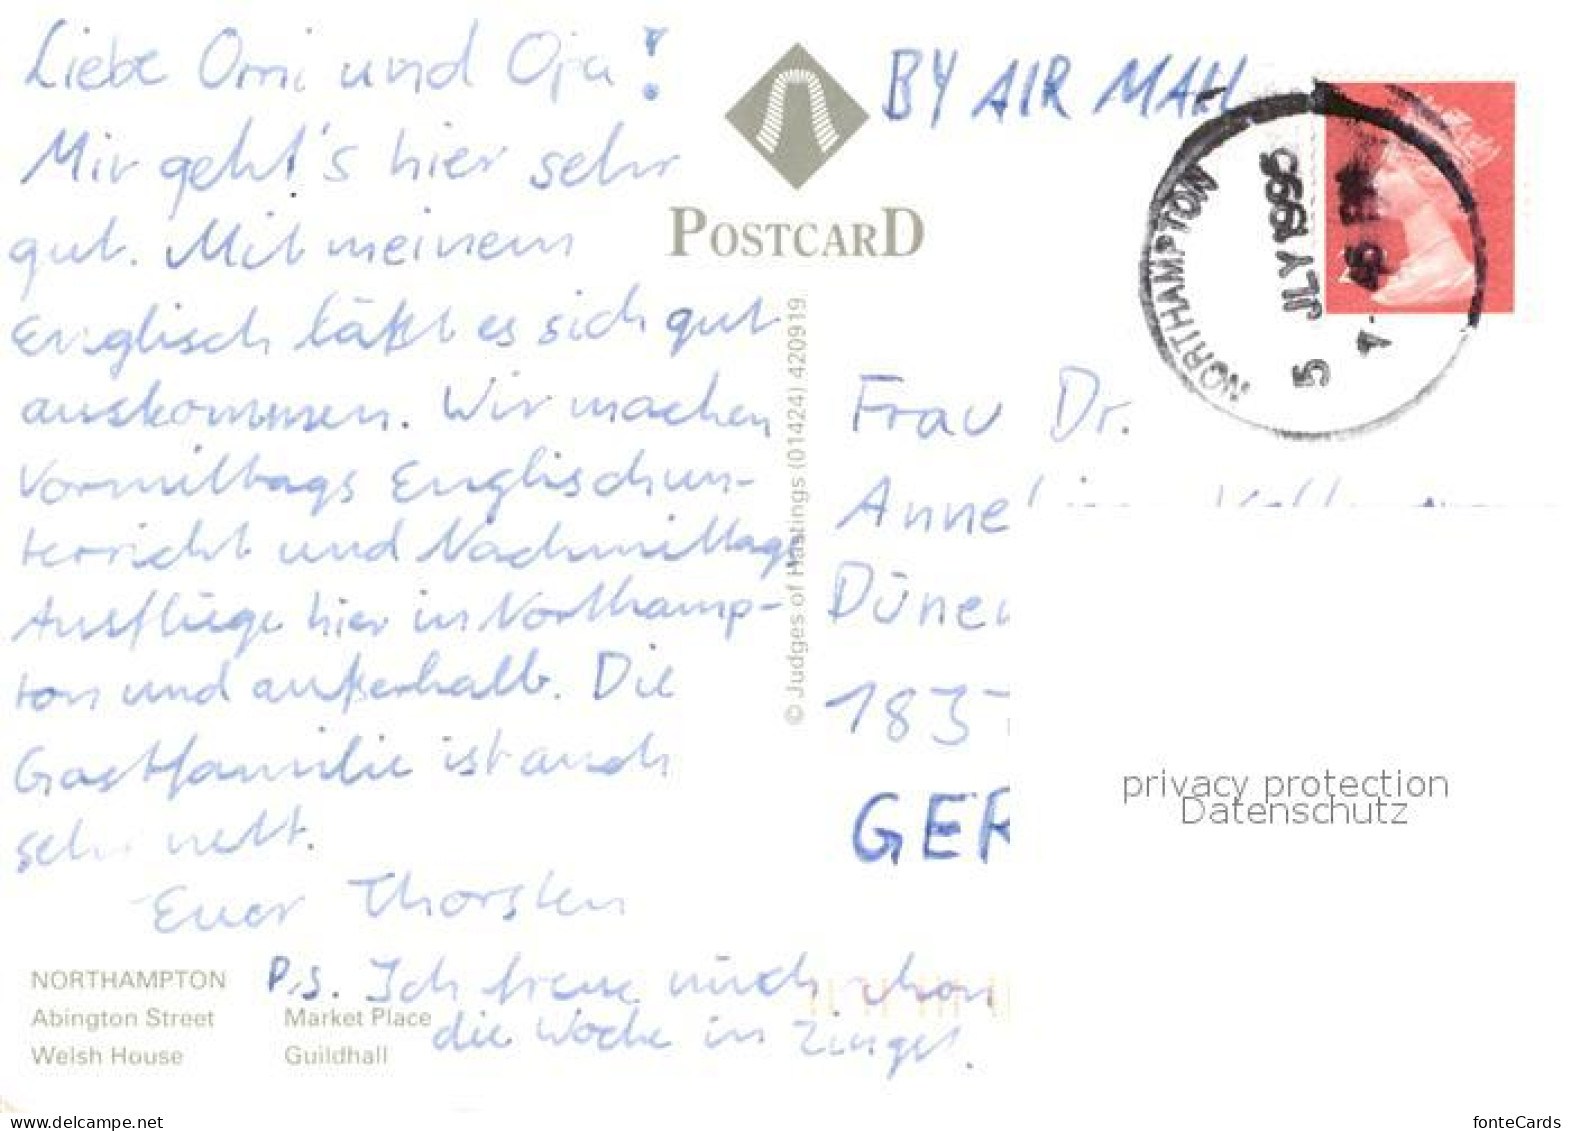 Liebe Omi und Opa!
Mir geht's hier sehr
gut. Mit meinem
Englisch läßt es sich gut
auskommen. Wir machen
Vormittags Englischun-
terricht und Nachmittags
Ausflüge hier in Northamp-
ton und außerhalb. Die
Gastfamilie ist auch
sehr nett.
Euer Thorsten
P.S. Ich freue mich schon
die Woche in Zingst.
NORTHAMPTON
Abington Street
Welsh House
Market Place
Guildhall
POSTCARD
© Judges of Hastings (01424) 420919
BY AIR MAIL
NORTHAMPTON
5 JLY 1995
Frau Dr.
Anne
Düne
183
GER
privacy protection
Datenschutz
www.delcampe.net
fonteCards